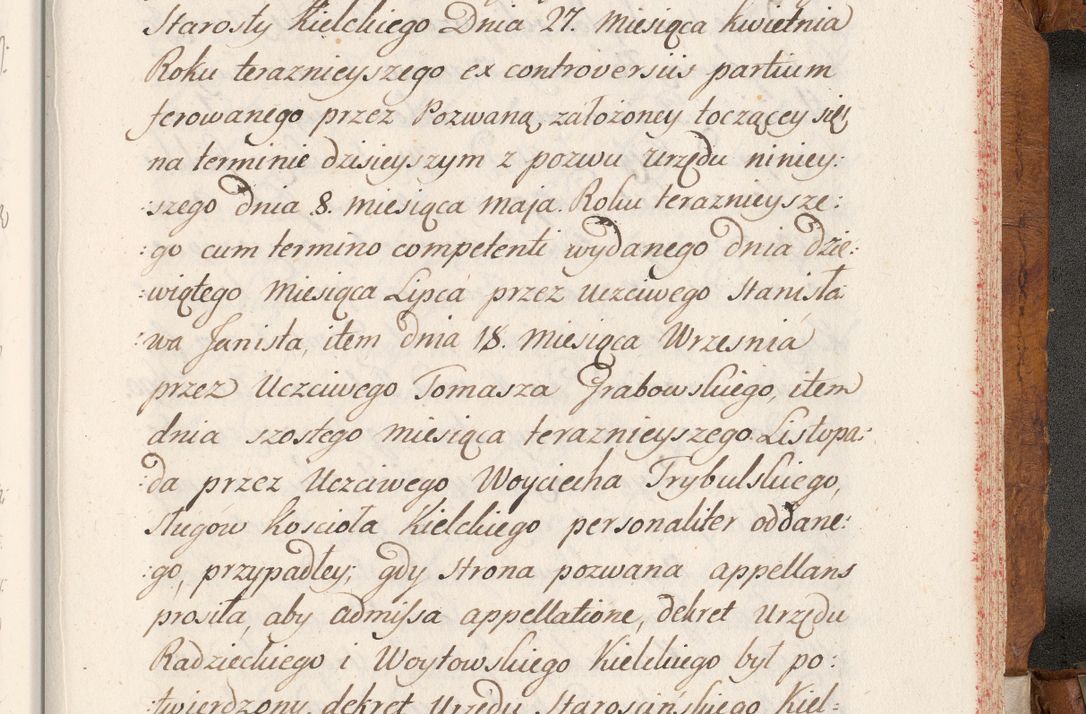 Starosty Kielckiego Dnia 27. Miesiąca kwietnia
Roku teraznieyszego ex controversiis partium
ferowanego przez Pozwaną założoney toczącey się
na terminie dzisieyszym z pozwu urzędu niniey:
:szego dnia 8. miesiąca maja Roku teraznieysze:
:go cum termino competenti wydanego dnia dzie:
:wiątego Miesiąca Lipca przez uczciwego Stanisła
:wa Janista, item dnia 18. Miesiąca Wrzesnia
przez Uczciwego Tomasza Grabowskiego, item
dnia szostego miesiąca teraznieyszego Listopa:
:da przez Uczciwego Woyciecha Trybulskiego,
sługow kościoła Kielckiego personaliter oddane:
:go, przypadłey; gdy strona pozwana appellans
prosiła, aby admissa appellatione, dekret Urzędu
Radzieckiego i Woytowskiego Kielckiego był po:
:twierdzony, dekret Urzędu Starościńskiego Kiel=